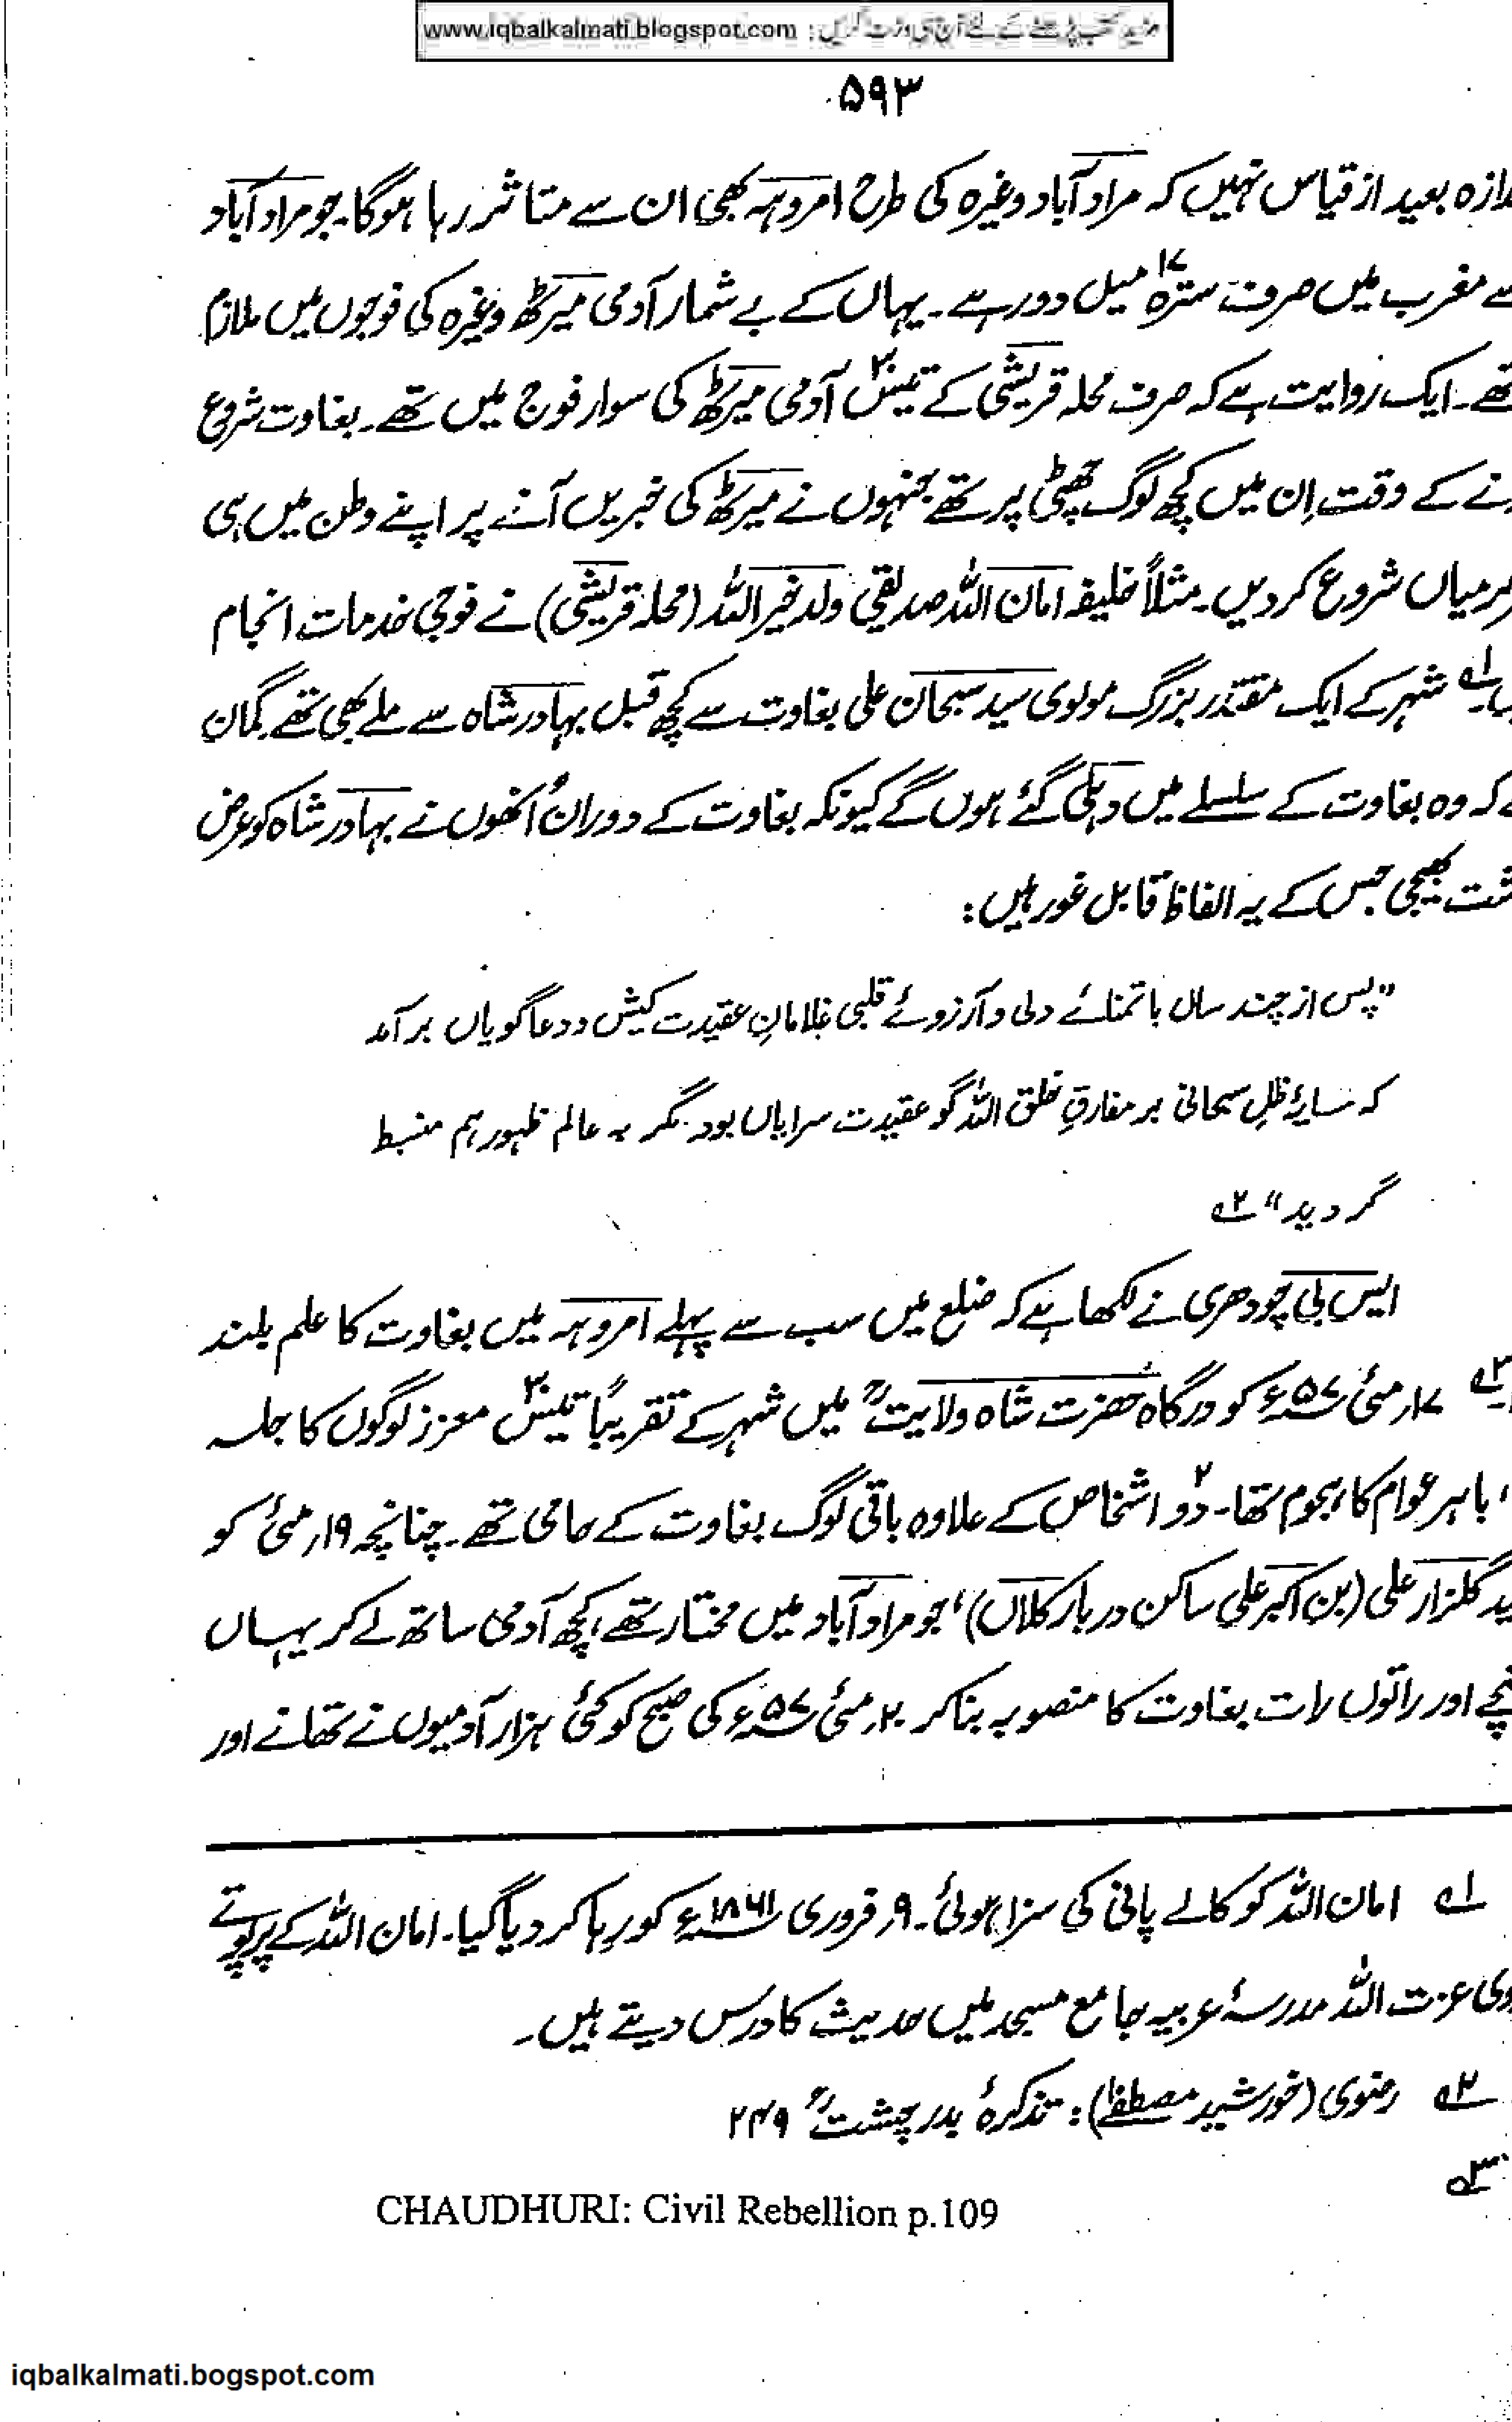 www.iqbalkalmati.blogspot.com : مزید کتب پڑھنے کے لئے آج ہی وزٹ کریں
۵۹۳
دازہ بعید از قیاس نہیں کہ مراد آباد وغیرہ کی طرح امروہہ بھی ان سے متاثر رہا ہوگا۔ جو مراد آباد
سے مغرب میں صرف سترہ ۱۷ میل دور ہے۔ یہاں کے بے شمار آدمی میرٹھ وغیرہ کی فوجوں میں ملازم
تھے۔ ایک روایت ہے کہ صرف محلہ قریشی کے تیس ۳۰ آدمی میرٹھ کی سوار فوج میں تھے۔ بغاوت شروع
نے کے وقت اِن میں کچھ لوگ چھٹی پر تھے جنہوں نے میرٹھ کی خبریں آنے پر اپنے وطن میں ہی
رمیاں شروع کر دیں۔ مثلاً خلیفہ امان اللہ صدیقی ولد خیر اللہ (محلہ قریشی) نے فوجی خدمات انجام
یں۔ ۱؎ شہر کے ایک مقتدر بزرگ مولوی سید سبحان علی بغاوت سے کچھ قبل بہادر شاہ سے ملے بھی تھے گمان
ہے کہ وہ بغاوت کے سلسلے میں دہلی گئے ہوں گے کیونکہ بغاوت کے دوران اُنھوں نے بہادر شاہ کو عرض
شت بھیجی جس کے یہ الفاظ قابل غور ہیں:
"پس از چند سال با تمنائے دلی و آرزوئے قلبی غلامانِ عقیدت کیش و دعا گویاں بر آمد
کہ سایۂ ظلِ سبحانی بر مفارقِ خلق اللہ گو عقیدت سرایاں بود مگر بہ عالم ظہور ہم منبسط
گردید" ۲؎
ایس بی چودھری نے لکھا ہے کہ ضلع میں سب سے پہلے امروہہ میں بغاوت کا علم بلند
۳؎ ۱۷؍مئی ۵۷ء کو درگاہ حضرت شاہ ولایتؒ میں شہر کے تقریباً تیس ۳۰ معزز لوگوں کا جلسہ
، باہر عوام کا ہجوم تھا۔ دو ۲ اشخاص کے علاوہ باقی لوگ بغاوت کے حامی تھے۔ چنانچہ ۱۹؍مئی کو
ید گلزار علی (بن اکبر علی ساکن دربار کلاں)، جو مراد آباد میں مختار تھے، کچھ آدمی ساتھ لے کر یہاں
نچے اور راتوں رات بغاوت کا منصوبہ بنا کر ۲۰؍مئی ۵۷ء کی صبح کو کئی ہزار آدمیوں نے تھانے اور
۱؎ امان اللہ کو کالے پانی کی سزا ہوئی۔ ۹؍فروری ۱۸۶۱ء کو رہا کر دیا گیا۔ امان اللہ کے پرپوتے
وی عزت اللہ مدرسۂ عربیہ جامع مسجد میں حدیث کا درس دیتے ہیں۔
۲؎ رضوی (خورشید مصطفےٰ): تذکرۂ بدر چشتؒ ۲۴۹
۳؎
CHAUDHURI: Civil Rebellion p.109
iqbalkalmati.bogspot.com